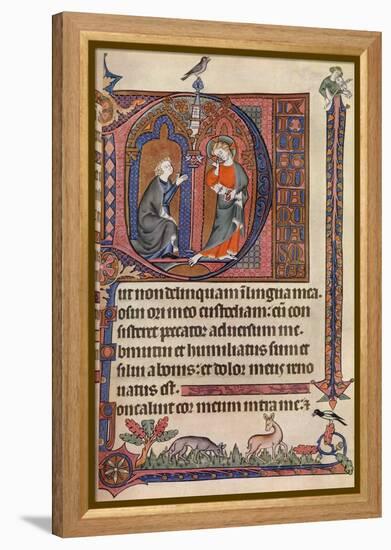 ut non delinquam ī lingua mea.
osui ori meo custodiam: cū con
sisteret peccator adversum me.
bmutui et humiliatus sum et
silui a bonis: et dolor meus reno
uatus est.
oncaluit cor meum intra me: &